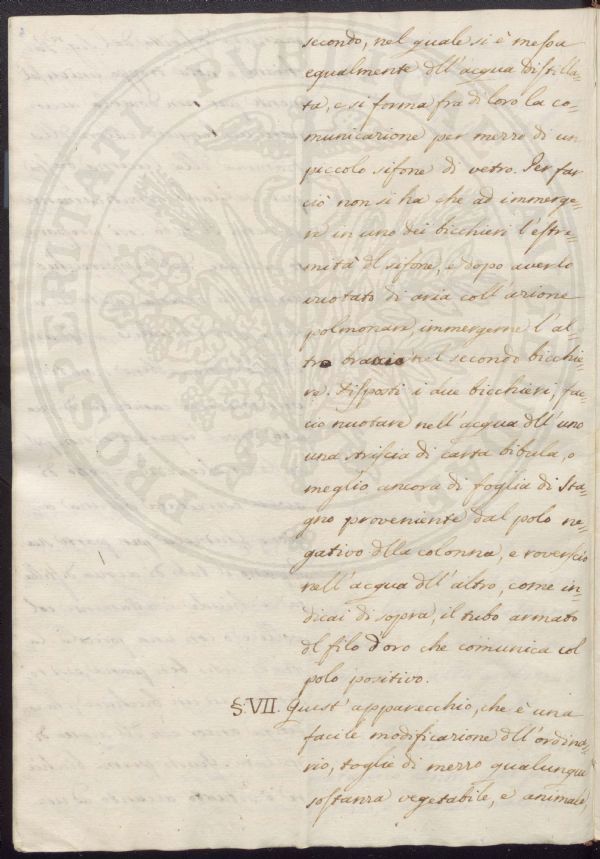 secondo, nel quale si è messa
egualmente dll'acqua distilla=
ta, e si forma fra di loro la co=
municazione per mezzo di un
piccolo sifone di vetro. Per far
ciò non si ha che ad immerge=
re in uno dei bicchieri l'estre=
mità dl sifone, e dopo averlo
vuotato di aria coll'azione
polmonare, immergerne l'al=
tro braccio nel secondo bicchie=
re. Disposti i due bicchieri, fac=
cio nuotare nell'acqua dll'uno
una striscia di carta bibula, o
meglio ancora di foglia di sta=
gno proveniente dal polo ne=
gativo dlla colonna, e rovescio
nell'acqua dll'altro, come in=
dicai di sopra, il tubo armato
dl filo d'oro che comunica col
polo positivo.
§. VII. Quest'apparecchio, che è una
facile modificazione dll'ordina=
rio, toglie di mezzo qualunque
sostanza vegetabile, e animale,
PROSPERITATI PUBLICAE